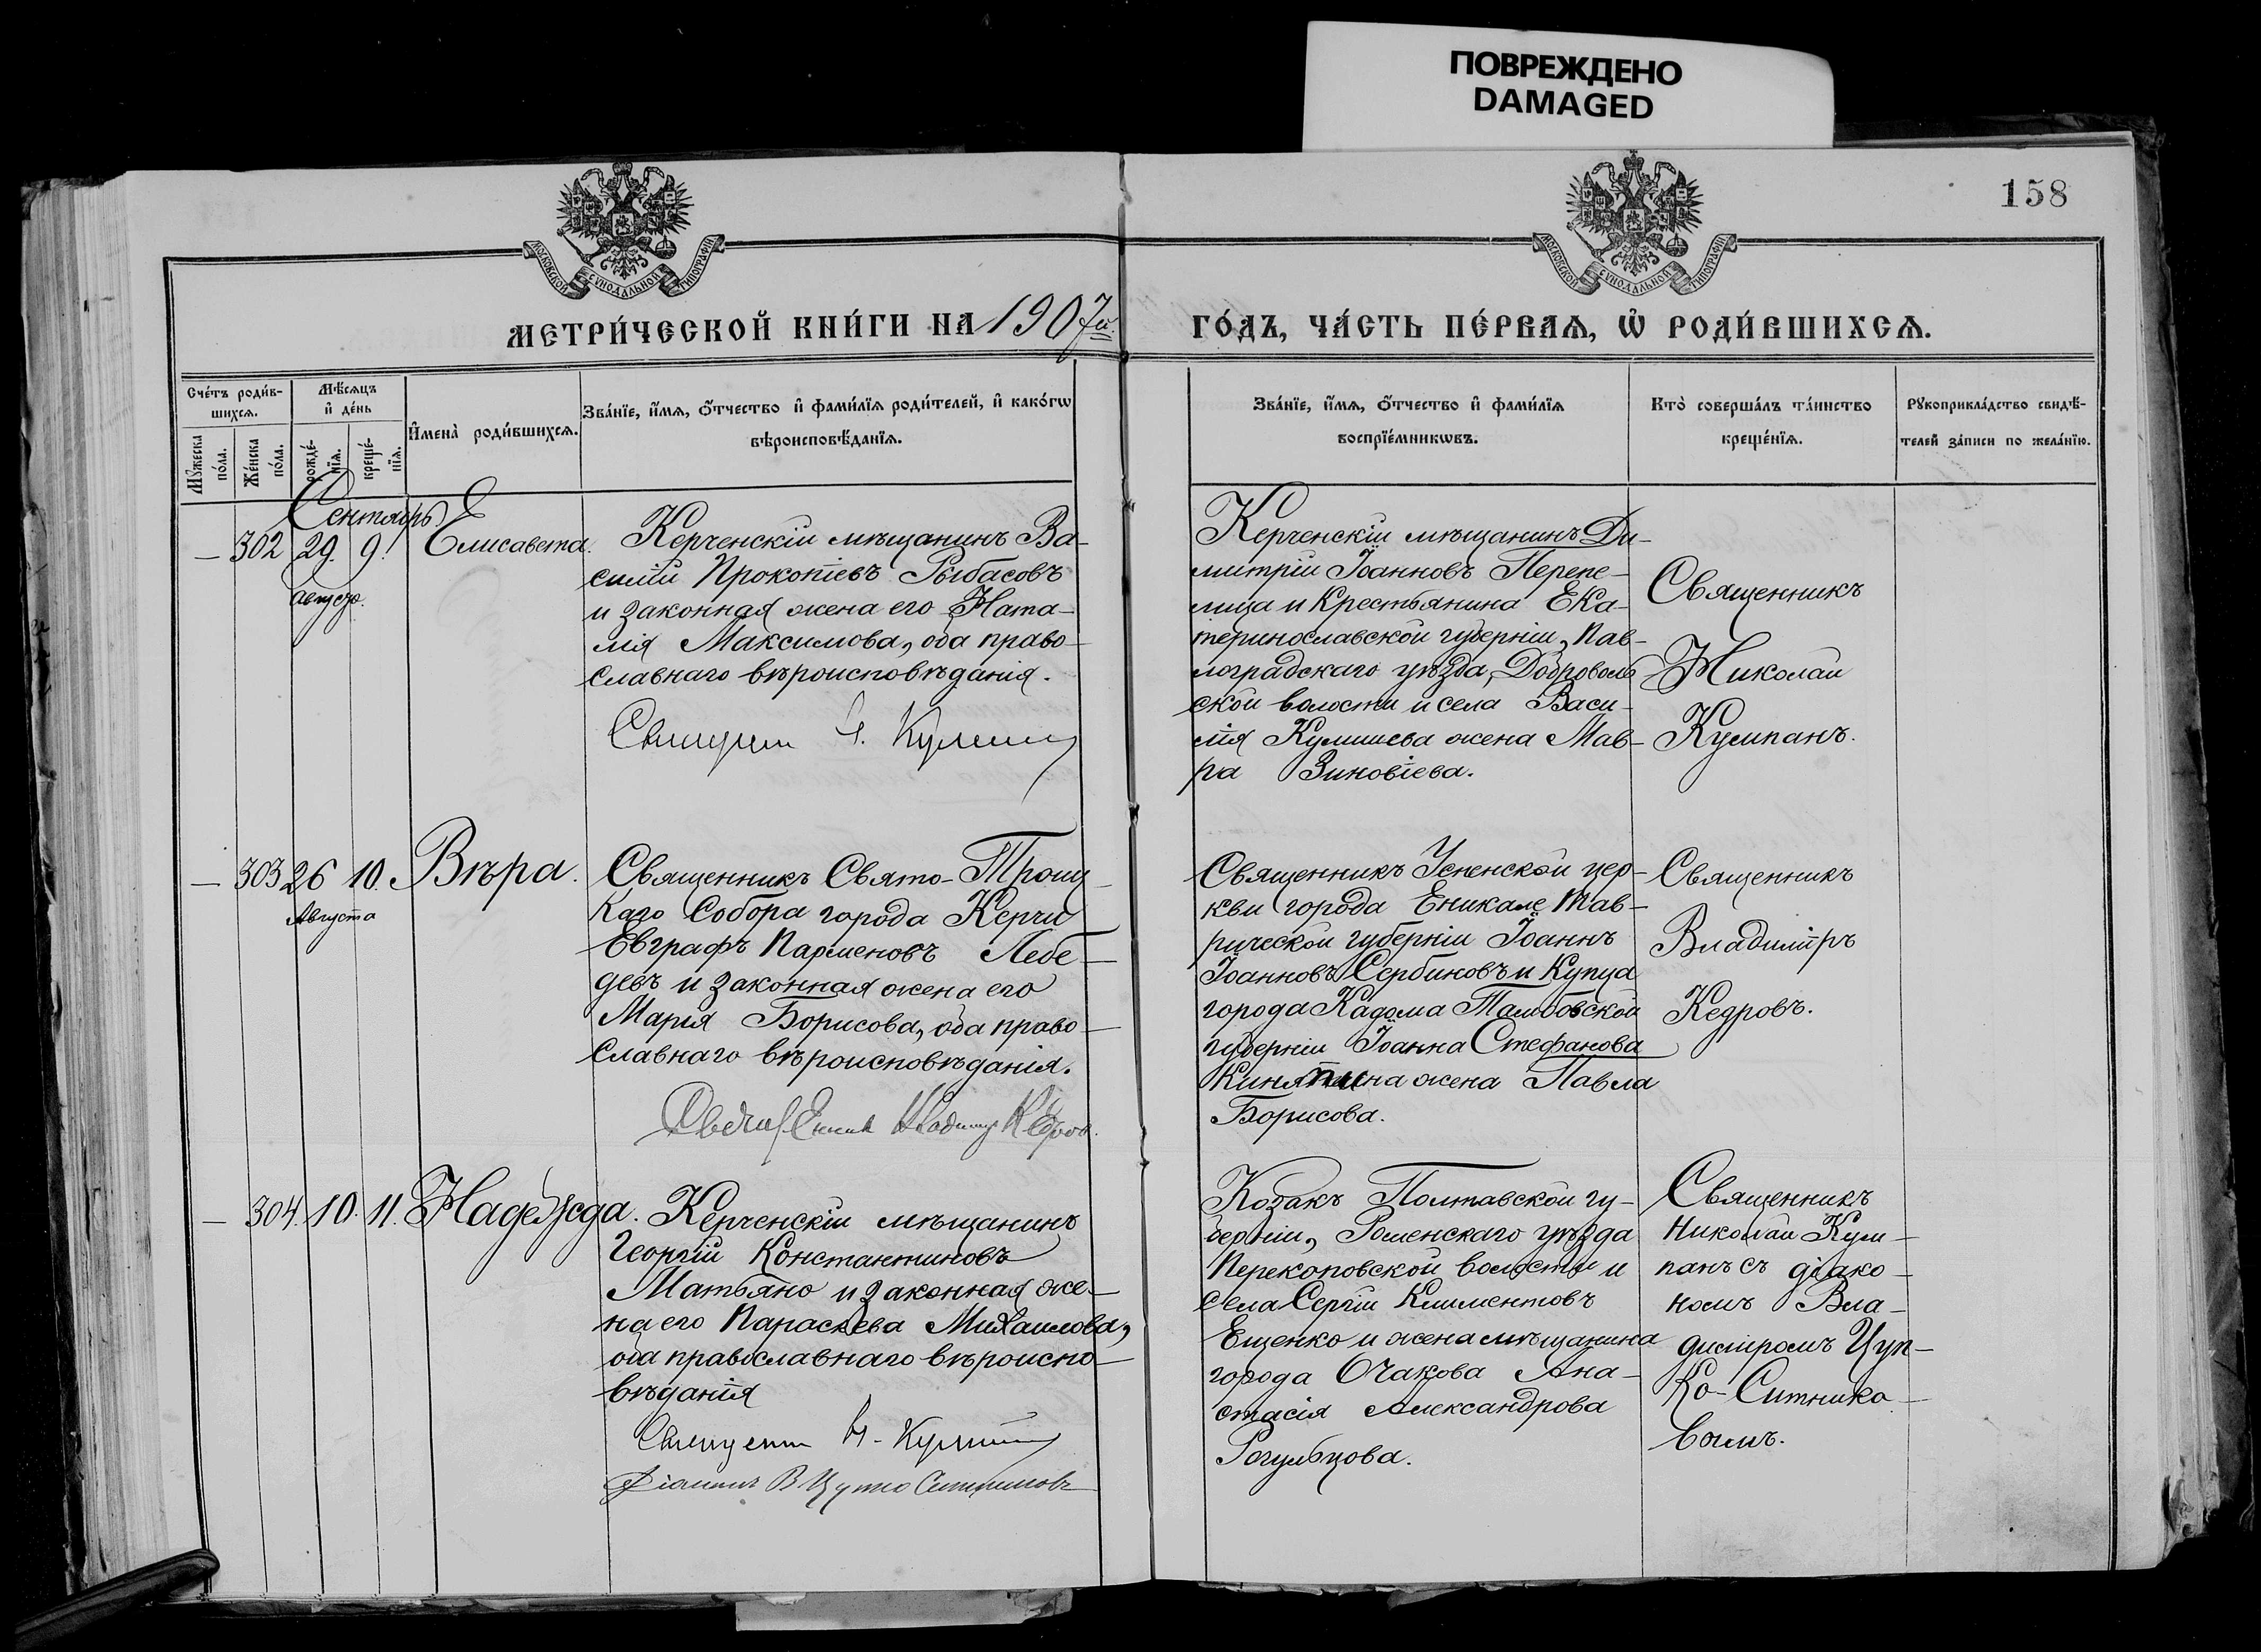 ПОВРЕЖДЕНО
DAMAGED
158
МОСКОВСКОЙ СУНОДАЛЬНОЙ ТИПОГРАФІИ
МОСКОВСКОЙ СУНОДАЛЬНОЙ ТИПОГРАФІИ
МЕТРИ́ЧЕСКОЙ КНИ́ГИ НА 1907й.
ГО́ДЪ, ЧА́СТЬ ПЕ́РВАѦ, Ѡ҆ РОДИ́ВШИХСѦ.
Сче́тъ роди́в-
шихсѧ.
Мѣ́сѧцъ
и҆ де́нь
И҆мена̀ роди́вшихсѧ.
Зва́нїе, и҆́мѧ, ѻ҆́тчество и҆ фами́лїѧ роди́телей, и҆ како́гѡ
вѣроисповѣ́данїѧ.
Мꙋ́жеска
по́ла.
Же́нска
по́ла.
рожде́-
нїѧ.
креще́-
нїѧ.
Зва́нїе, и҆́мѧ, ѻ҆́тчество и҆ фами́лїѧ
воспрїе́мникѡвъ.
Кто̀ соверша́лъ та́инство
креще́нїѧ.
Рꙋкоприкла́дство свидѣ́-
телей за́писи по жела́нїю.
Сентябрь
— 302 29. 9. Елисавета.
Августа.
Керченскій мѣщанинъ Ва-
силій Прокопіевъ Рыбасовъ
и законная жена его Ната-
лія Максимова, оба право-
славнаго вѣроисповѣданія.
Священникъ Н. Кумпанъ
Керченскій мѣщанинъ Ди-
митрій Іоанновъ Перепе-
лица и Крестьянина Ека-
теринославской губерніи, Пав-
лоградскаго уѣзда, Доброволь
ской волости и села Васи-
лія Кулишева жена Мав-
ра Зиновіева.
Священникъ
Николай
Кумпанъ.
— 303 26 10. Вѣра.
Августа
Священникъ Свято-Троиц-
каго Собора города Керчи
Евграфъ Парменовъ Лебе-
девъ и законная жена его
Марія Борисова, оба право-
славнаго вѣроисповѣданія.
Священникъ Владимір Кедров.
Священникъ Успенской цер-
кви города Еникале Тав-
рической губерніи Іоаннъ
Іоанновъ Сербиновъ и Купца
города Кадома Тамбовской
губерніи Іоанна Стефанова
Киняпина жена Павла
Борисова.
Священникъ
Владиміръ
Кедровъ.
— 304. 10. 11. Надежда.
Керченскій мѣщанинъ
Георгій Константиновъ
Матьяно и законная же-
на его Параскева Михаилова,
оба православнаго вѣроиспо-
вѣданія
Священникъ Н. Кумпанъ
Діаконъ В Цупко Ситниковъ
Козакъ Полтавской гу-
берніи, Роменскаго уѣзда
Перекоповской волости и
села Сергій Климентовъ
Ещенко и жена мѣщанина
города Очакова Ана-
стасія Александрова
Рогульцова.
Священникъ
Николай Кум-
панъ съ діако-
номъ Вла-
диміромъ Цуп-
ко-Ситнико-
вымъ.